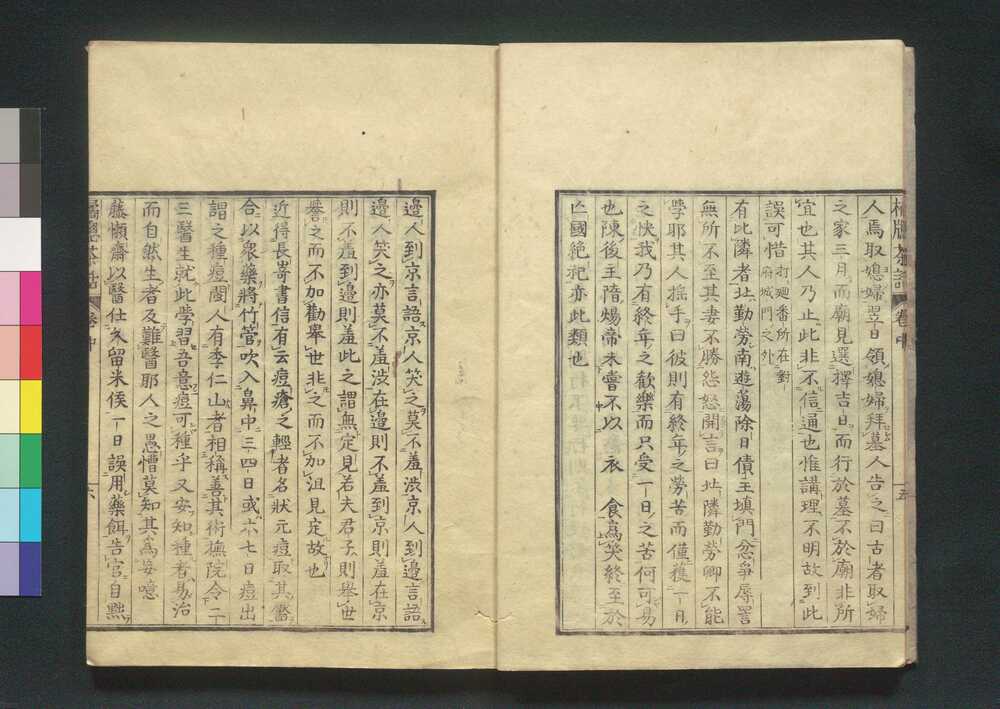 人焉取媳婦翌日領媳婦拜墓人告之曰古者取婦
之家三月而廟見選擇吉日而行於墓不於廟非所
宜也其人乃止此非不信通也惟講理不明故到此
誤可惜打廻番所在對府城門之外
有比隣者北勤勞南遊蕩除日債主填門忿爭辱詈
無所不至其妻不勝怨怒開言曰北隣勤勞卿不能
學耶其人搖手曰彼則有終年之勞苦而僅獲一日
之快我乃有終年之歡樂而只受一日之苦何可易
也陳後主隋煬帝未嘗不以衣食為笑終至於
亡國絶祀亦此類也
邊人到京言語京人笑之莫不羞澁京人到邊言語
邊人笑之亦莫不羞澁在邊則不羞到京則羞在京
則不羞到邊則羞此之謂無定見若夫君子則舉世
譽之而不加勸舉世非之而不加沮見定故也
近得長崎書信有云痘瘡之輕者名狀元痘取其靨
合以衆藥將竹管吹入鼻中三四日或六七日痘出
謂之種痘閩人有李仁山者相稱善其術撫院令二
三醫生就此學習吾意痘可種乎又安知種者易治
而自然生者及難醫耶人之愚懵莫知其為妄噫
藤懶齋以醫仕久留米侯一日誤用藥餌告官自黜
橘牕茶話 卷中